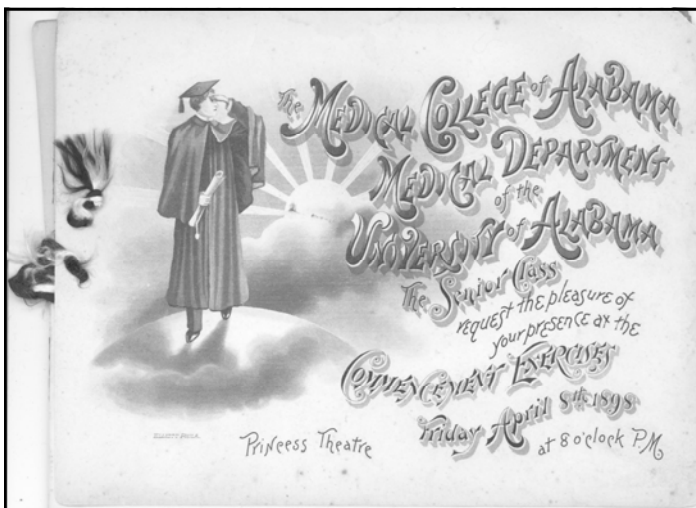 The MEDICAL COLLEGE of ALABAMA
MEDICAL DEPARTMENT
of the
UNIVERSITY of ALABAMA
The Senior Class
request the pleasure of
your presence at the
COMMENCEMENT EXERCISES
Friday April 8th 1898
at 8 o'clock P.M.
Princess Theatre